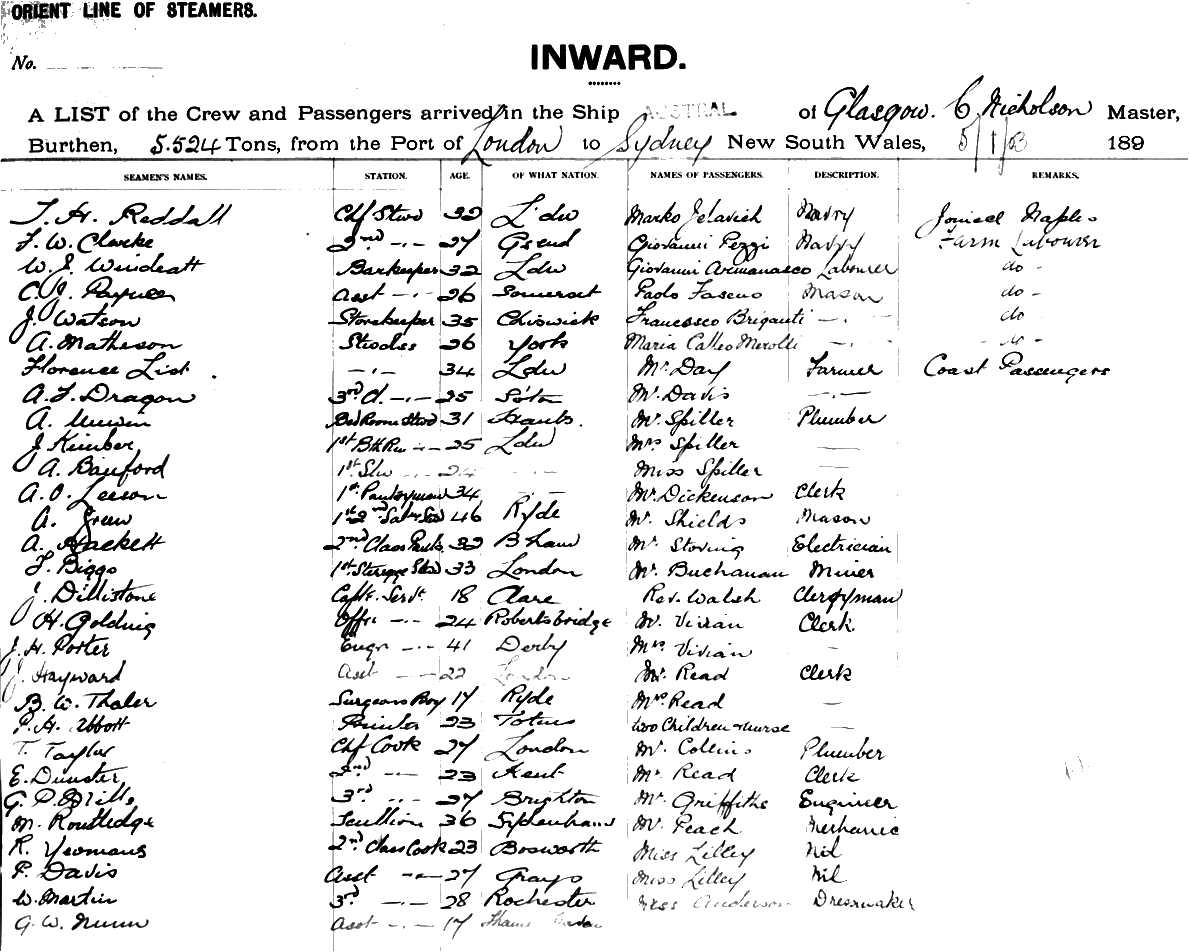 ORIENT LINE OF STEAMERS.
No.
INWARD.
A LIST of the Crew and Passengers arrived in the Ship AUSTRAL of Glasgow. C Nicholson Master,
Burthen, 5.524 Tons, from the Port of London to Sydney New South Wales, 5/1/03 189
SEAMEN'S NAMES. STATION. AGE. OF WHAT NATION. NAMES OF PASSENGERS. DESCRIPTION. REMARKS.
T. H. Reddall Chf Stwd 32 Ldn Marko Jelavich Navvy Joined Naples
F. W. Clarke 2nd -"- 27 Giovanni Pezzi Navvy Farm Labourer
W. J. Windeatt Barkeeper 32 Ldn Giovanni Armanasco Labourer do -
C. J. Asst -"- 26 Somerset Paolo Mason do -
J. Watson Storekeeper 35 Chiswick Francesco Briganti -"- do -
A. Matheson Stwdss 26 York Maria Merolli -"- do -
Florence List -"- 34 Ldn Mr Day Farmer Coast Passengers
A. F. Dragon 3rd Cl. -"- 25 So'ton Mr. Davis -"-
A. Unwin Bed Room Stwd 31 Hants. Mr Spiller Plumber
J. Kimber 1st Bth Rm -"- 25 Ldn Mrs Spiller —
A. Banford 1st Stw -"- 24 -"- Miss Spiller —
A. O. Leeson 1st Pantryman 34 - - Mr Dickenson Clerk
A. Green 1st 2nd 46 Ryde Mr Shields Mason
A. Hackett 2nd Class 32 B'ham Mr Stoving Electrician
F. Biggs 1st Steerage Stwd 33 London Mr Buchanan Miner
J. Dillistone Capt. Servt. 18 Clare Rev. Walsh Clergyman
H. Golding Offrs -"- 24 Robertsbridge Mr Vivian Clerk
J. H. Porter Engr -"- 41 Derby Mrs Vivian -
J. Hayward Asst -"- 22 London Mr Read Clerk
B. W. Thaler Surgeons Boy 17 Ryde Mrs Read —
P. H. Abbott Printer 23 Totnes two Children & Nurse —
T. Taylor Chf Cook 27 London Mr Collins Plumber
E. Dunster 2nd -"- 23 Kent Mr Read Clerk
G. D. Mills 3rd -"- 27 Brighton Mr Griffiths Engineer
M. Routledge Scullion 36 Sydenham Mr Peach Mechanic
R. Yeomans 2nd Class Cook 23 Bosworth Miss Lilley Nil
P. Davis Asst -"- 27 Grays Miss Lilley Nil
W. Martin 3rd -"- 28 Rochester Miss Anderson Dressmaker
G. W. Nunn Asst -"- 17